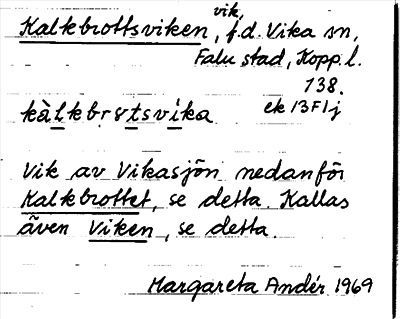 vik,
Kalkbrottsviken, f.d. Vika sn,
Falu stad, Kopp. l.
138.
kàlkbrɤtsvika ek 13F1j
Vik av Vikasjön nedanför
Kalkbrottet, se detta. Kallas
även Viken, se detta.
Margareta Andér 1969